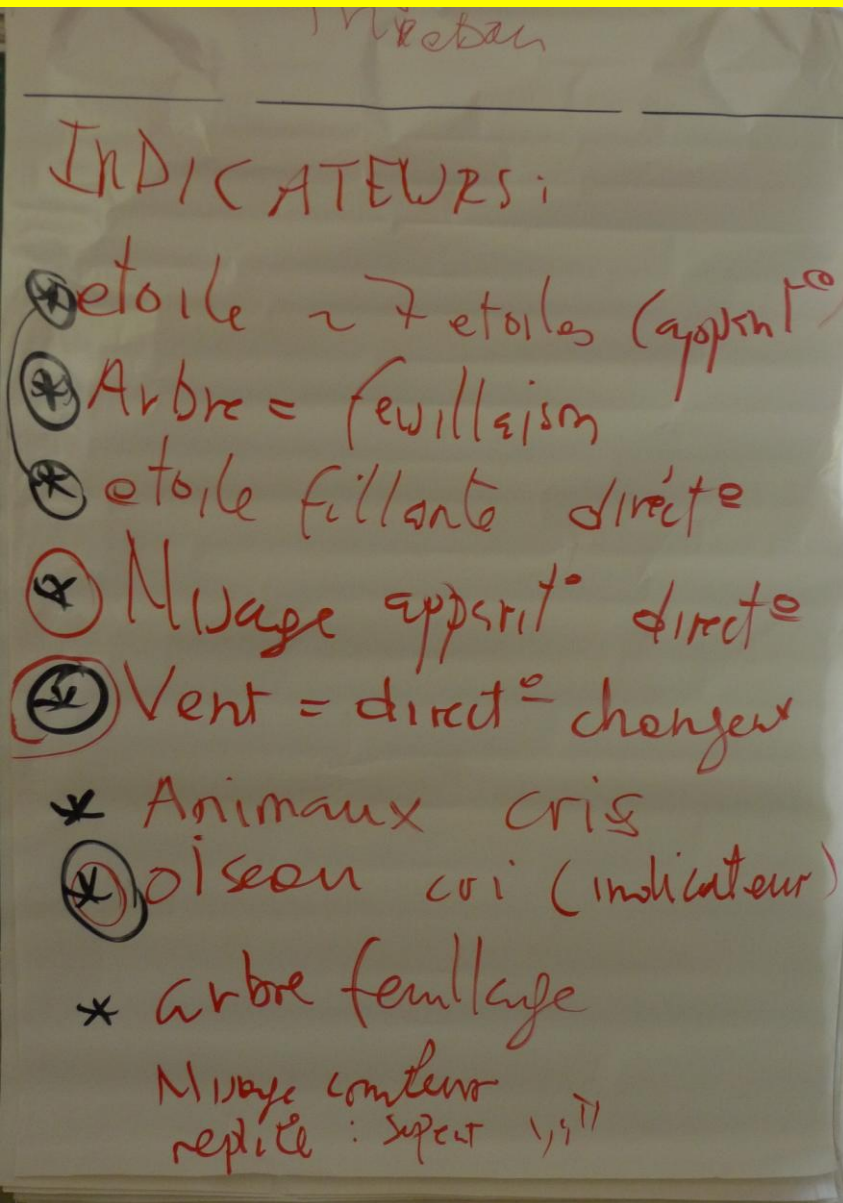 INDICATEURS:
* etoile ~ 7 etoiles
* Arbre = feuillaison
* etoile fillante direct°
* Nuage apparit° direct°
* Vent = direct° changeur
* Animaux cris
* oiseau cri (indicateur)
* arbre feuillage
Nuage couleur
reptile :